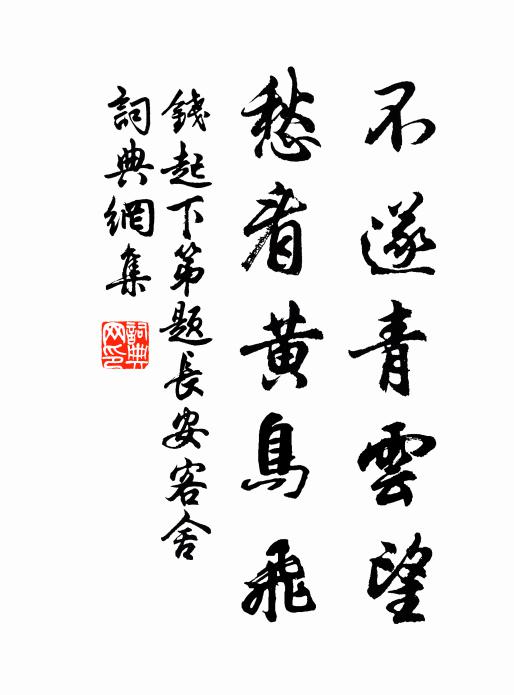 不遂青雲望
愁看黃鳥飛
錢起下第題長安客舍
詞典網集
詞典網印